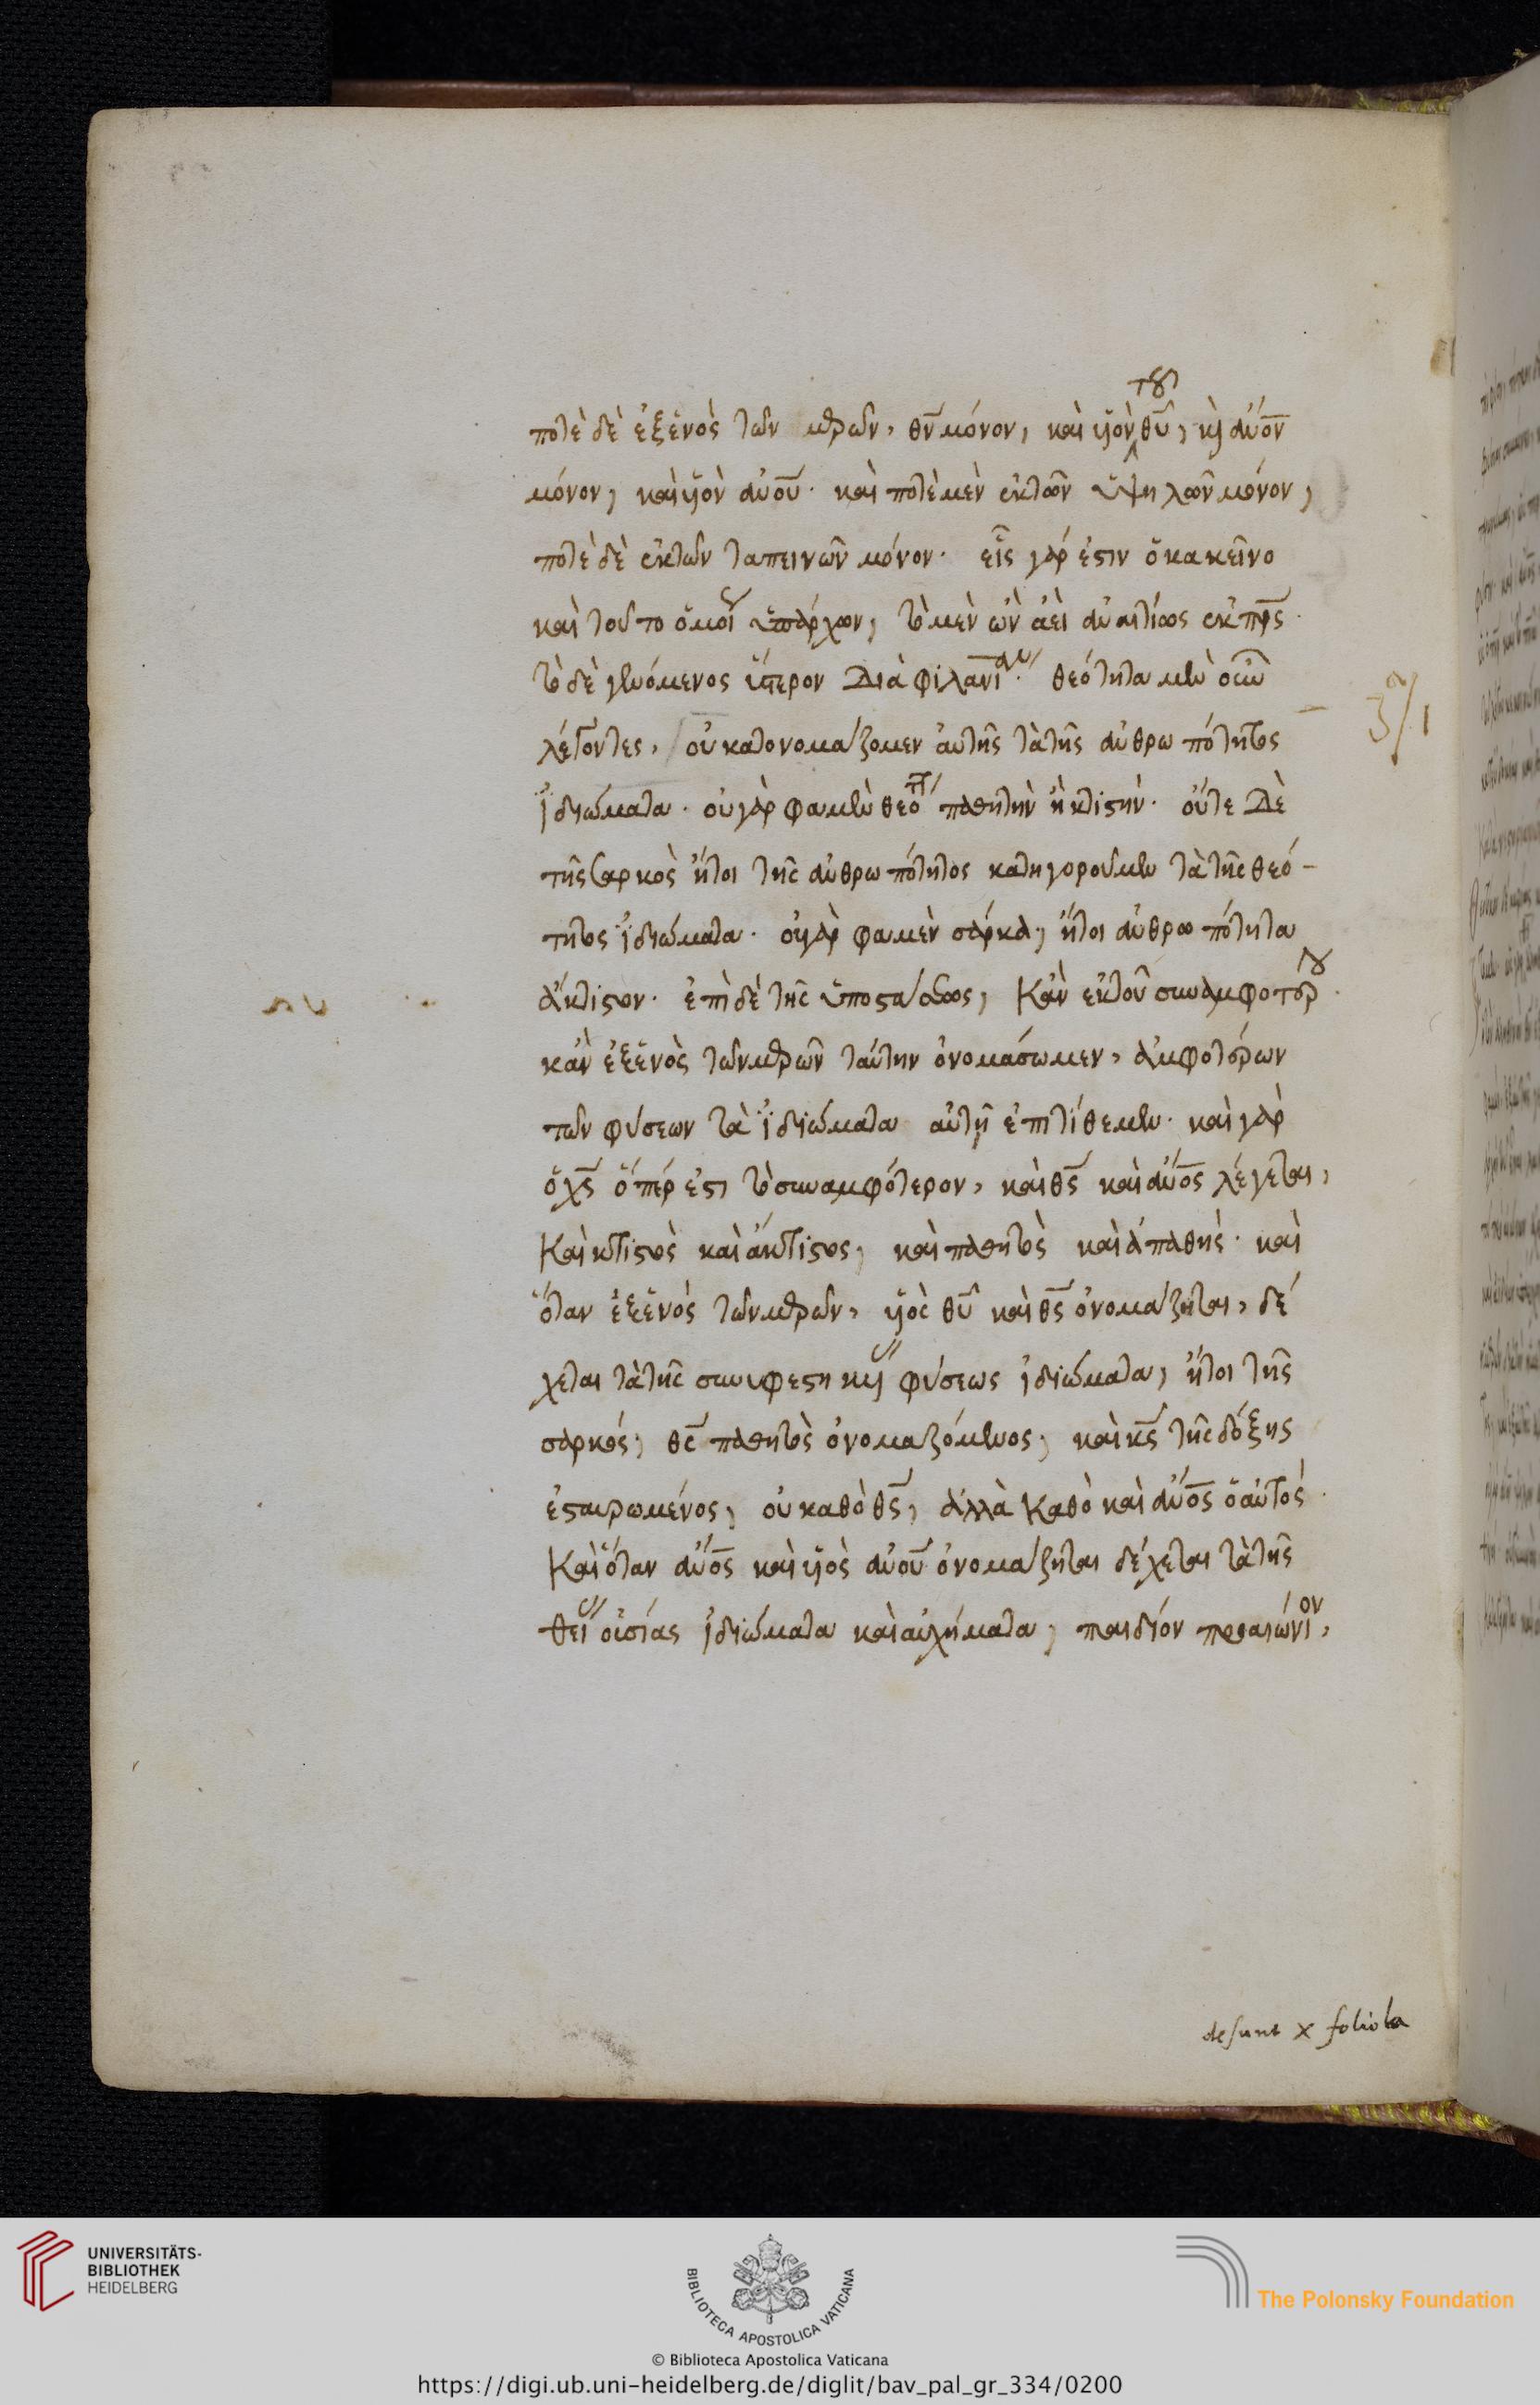 ποτὲ δὲ ἐξ ἑνὸς τῶν μερῶν, θν μόνον, καὶ υἱὸν τοῦ θυ, κὶ ἀνον
μόνον, καὶ υἱὸν ἀνου· καὶ ποτὲ μὲν ἐκ τῶν ὑψηλῶν μόνον,
ποτὲ δὲ ἐκ τῶν ταπεινῶν μόνον· εἷς γάρ ἐστιν ὁ κακεῖνο
καὶ τοῦτο ὁμοί ὑπάρχων, τὸ μὲν ὢν ἀεὶ ἀναιτίως ἐκ πρς·
τὸ δὲ γενόμενος ὕστερον διὰ φιλανι· θεότητα μὲν οὖν
λέγοντες, οὐ κατονομάζομεν αὐτῆς τὰ τῆς ἀνθρωπότητος
ἰδιώματα· οὐ γάρ φαμεν θεότητ παθητὴν ἢ κτιστήν· οὔτε δὲ
τῆς σαρκὸς ἤτοι τῆς ἀνθρωπότητος κατηγοροῦμεν τὰ τῆς θεό-
τητος ἰδιώματα· οὐ γάρ φαμὲν σάρκα, ἤτοι ἀνθρωπότητα
ἄκτιστον· ἐπὶ δὲ τῆς ὑποστάσεως, κἂν ἐκ τοῦ συναμφοτέρου·
κἂν ἐξ ἑνὸς τῶν μερῶν ταύτην ὀνομάσωμεν, ἀμφοτέρων
τῶν φύσεων τὰ ἰδιώματα αὐτῇ ἐπιτίθεμεν· καὶ γὰρ
ὁ χς ὅπέρ ἐστι τὸ συναμφότερον, καὶ θς καὶ ἄνος λέγεται,
καὶ κτιστὸς καὶ ἄκτιστος, καὶ παθητὸς καὶ ἀπαθής· καὶ
ὅταν ἐξ ἑνὸς τῶν μερῶν, υἱὸς θυ καὶ θς ὀνομάζηται, δέ
χεται τὰ τῆς συνυφεστηκυί φύσεως ἰδιώματα, ἤτοι τῆς
σαρκός, θς παθητὸς ὀνομαζόμενος, καὶ κς τῆς δόξης
ἐσταυρωμένος, οὐ καθὸ θς, ἀλλὰ καθὸ καὶ ἄνος ὁ αὐτός·
Καὶ ὅταν ἄνος καὶ υἱὸς ἀνου ὀνομάζηται δέχεται τὰ τῆς
θεί οὐσίας ἰδιώματα καὶ αὐχήματα, παιδίον προαιώνιον,
desunt x foliola
UNIVERSITÄTS-
BIBLIOTHEK
HEIDELBERG
BIBLIOTECA APOSTOLICA VATICANA
The Polonsky Foundation
© Biblioteca Apostolica Vaticana
https://digi.ub.uni-heidelberg.de/diglit/bav_pal_gr_334/0200